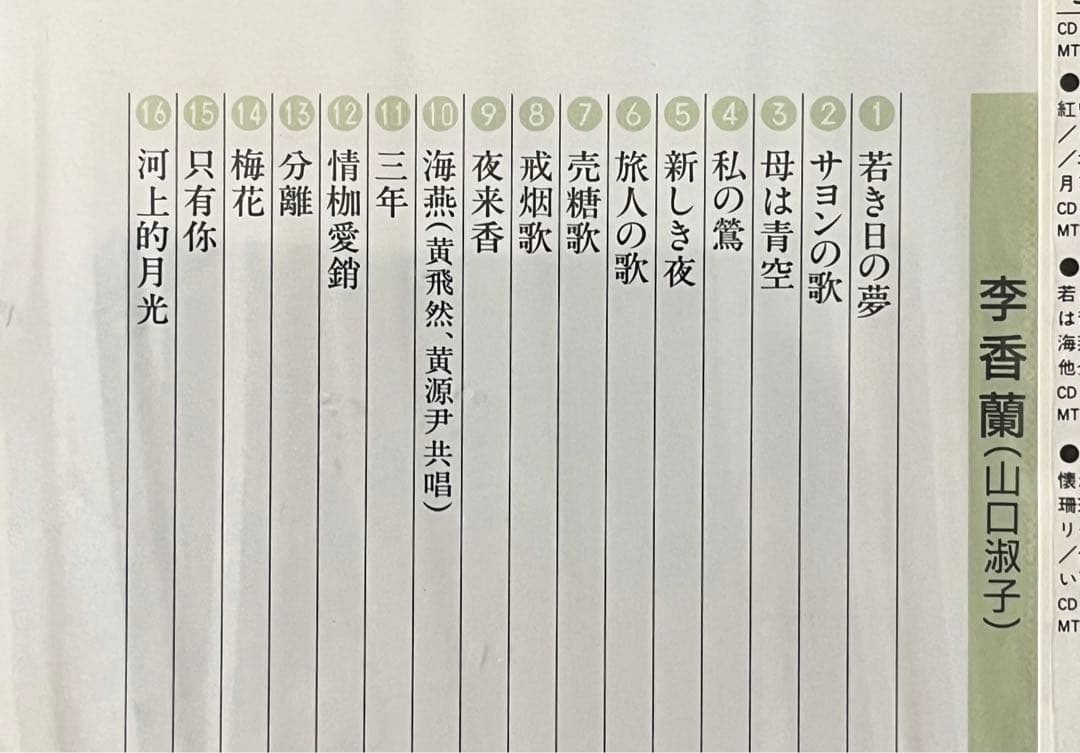 CD
MT
●
紅
／
／
月
CD
MT
●
若
は
海
他
CD
MT
●
懐
珊
リ
／
い
CD
MT
李香蘭(山口淑子)
1 若き日の夢
2 サヨンの歌
3 母は青空
4 私の鶯
5 新しき夜
6 旅人の歌
7 売糖歌
8 戒烟歌
9 夜来香
10 海燕(黄飛然、黄源尹共唱)
11 三年
12 情枷愛銷
13 分離
14 梅花
15 只有你
16 河上的月光